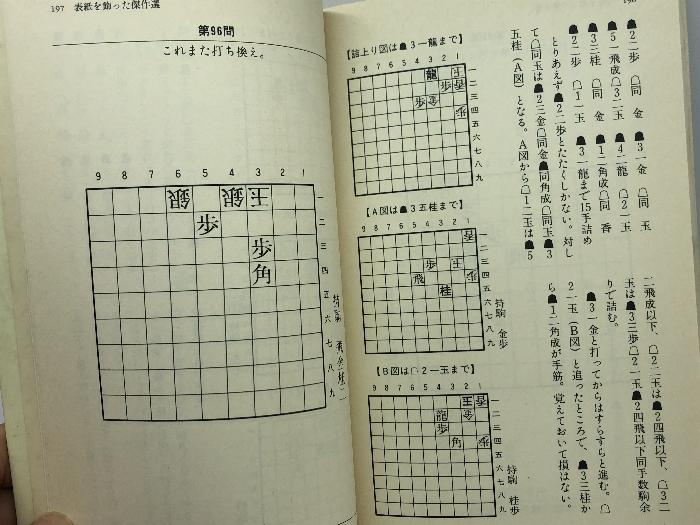 197 表紙を飾った傑作選
第96問
これまた打ち換え。
9 8 7 6 5 4 3 2 1
銀 銀 王 一
歩 二
歩 三
角 四
五
六
七
八
九
持駒
196
☗2二歩 ☖同 金 ☗3一金 ☖同 玉
☗5一飛成☖3二玉 ☗4二龍 ☖2一玉
☗3三桂 ☖同 金 ☗1二角成☖同 香
☗2二歩 ☖1一玉 ☗3一龍まで15手詰め
とりあえず☗2二歩とたたくしかない。対し
て☖同玉は☗2三金☖同金☗同角成☖同玉☗3
五桂（A図）となる。A図から☖1二玉は☗5
二飛成以下、☖2二玉は☗2四飛以下、☖3二
玉は☗3三歩☖2一玉☗2四飛以下同手数駒余
りで詰む。
☗3一金と打ってからはすらすらと進む。☖
2一玉（B図）と追ったところで、☗3三桂か
ら☗1二角成が手筋。覚えておいて損はない。
【詰上り図は☗3一龍まで】
9 8 7 6 5 4 3 2 1
龍 王 一
歩 香 二
歩 金 三
四
五
六
七
八
九
【A図は☗3五桂まで】
9 8 7 6 5 4 3 2 1
香 一
二
歩 王 三
飛 四
桂 五
六
七
八
九
持駒 金歩
【B図は☖2一玉まで】
9 8 7 6 5 4 3 2 1
王 香 一
龍 金 二
歩 三
角 四
五
六
七
八
九
持駒 桂歩